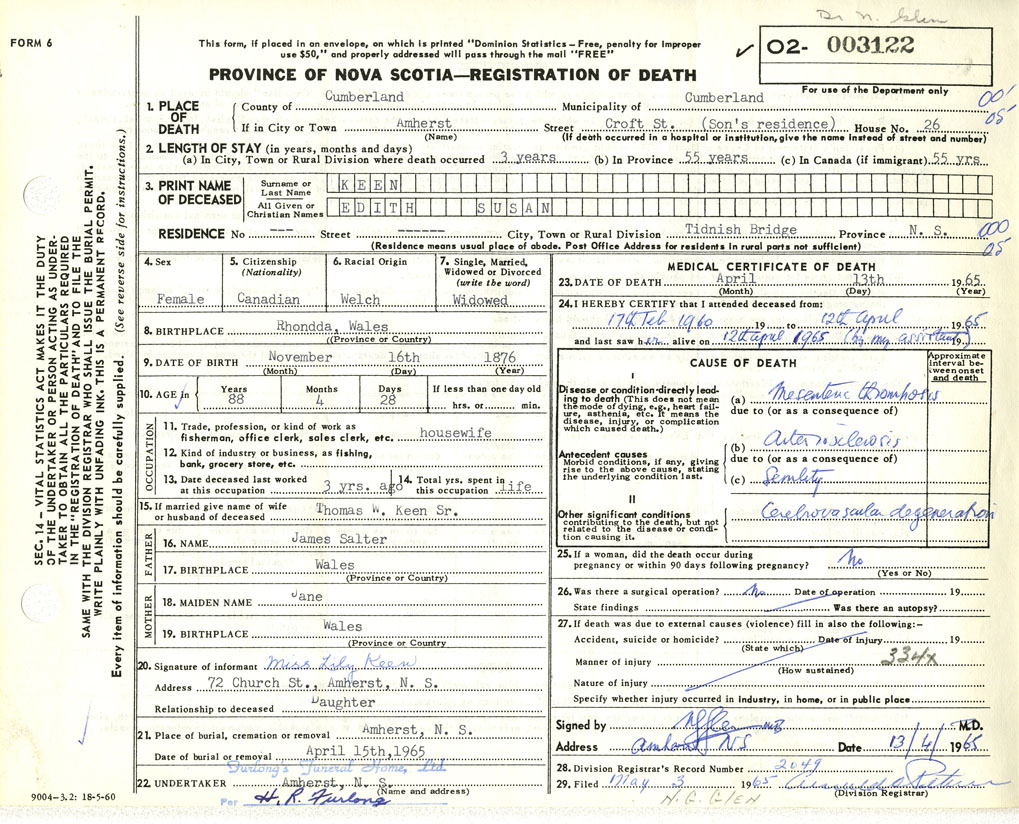 Dr N. Glen
FORM 6
This form, if placed in an envelope, on which is printed "Dominion Statistics – Free, penalty for improper
use $50," and properly addressed will pass through the mail "FREE"
✓ O2- 003122
PROVINCE OF NOVA SCOTIA—REGISTRATION OF DEATH
For use of the Department only
1. PLACE OF DEATH
County of Cumberland Municipality of Cumberland 00'
If in City or Town Amherst Street Croft St. (Son's residence) House No. 26 05
(Name) (If death occurred in a hospital or institution, give the name instead of street and number)
2. LENGTH OF STAY (in years, months and days)
(a) In City, Town or Rural Division where death occurred 3 years (b) In Province 55 years (c) In Canada (if immigrant) 55 yrs
3. PRINT NAME OF DECEASED
Surname or Last Name KEEN
All Given or Christian Names EDITH SUSAN
RESIDENCE No --- Street ------ City, Town or Rural Division Tidnish Bridge Province N. S. 000
(Residence means usual place of abode. Post Office Address for residents in rural parts not sufficient) 05
4. Sex Female
5. Citizenship (Nationality) Canadian
6. Racial Origin Welch
7. Single, Married, Widowed or Divorced (write the word) Widowed
8. BIRTHPLACE Rhondda, Wales
((Province or Country)
9. DATE OF BIRTH November 16th 1876
(Month) (Day) (Year)
10. AGE in ✓ Years 88 Months 4 Days 28 If less than one day old hrs. or min.
OCCUPATION
11. Trade, profession, or kind of work as
fisherman, office clerk, sales clerk, etc. housewife
12. Kind of industry or business, as fishing,
bank, grocery store, etc.
13. Date deceased last worked
at this occupation 3 yrs. ago
14. Total yrs. spent in
this occupation life
15. If married give name of wife
or husband of deceased Thomas W. Keen Sr.
FATHER
16. NAME James Salter
17. BIRTHPLACE Wales
(Province or Country)
MOTHER
18. MAIDEN NAME Jane
19. BIRTHPLACE Wales
(Province or Country
20. Signature of informant Miss Lily Keen
Address 72 Church St., Amherst, N. S.
Relationship to deceased Daughter
21. Place of burial, cremation or removal Amherst, N. S.
Date of burial or removal April 15th,1965
Furlong's Funeral Home, Ltd.
22. UNDERTAKER Amherst, N. S.
(Name and address)
Per H. R. Furlong
9004-3.2: 18-5-60
MEDICAL CERTIFICATE OF DEATH
23. DATE OF DEATH April 13th 1965
(Month) (Day) (Year)
24. I HEREBY CERTIFY that I attended deceased from:
17th Feb 1960 19 to 12th April 1965
and last saw her alive on 12th April 1965 (by my assistant) 19
CAUSE OF DEATH
Approximate interval between onset and death
I
Disease or condition directly leading to death (This does not mean the mode of dying, e.g., heart failure, asthenia, etc. It means the disease, injury, or complication which caused death.)
(a) Mesenteric thrombosis
due to (or as a consequence of)
(b) Arteriosclerosis
Antecedent causes
Morbid conditions, if any, giving rise to the above cause, stating the underlying condition last.
due to (or as a consequence of)
(c) Senility
II
Other significant conditions
contributing to the death, but not related to the disease or condition causing it.
Cerebrovascular degeneration
25. If a woman, did the death occur during
pregnancy or within 90 days following pregnancy? No
(Yes or No)
26. Was there a surgical operation? No Date of operation 19
State findings Was there an autopsy?
27. If death was due to external causes (violence) fill in also the following:–
Accident, suicide or homicide? Date of injury 19
(State which)
Manner of injury 334x
(How sustained)
Nature of injury
Specify whether injury occurred in industry, in home, or in public place
Signed by M.D.
Address Amherst NS Date 13/4/ 1965
28. Division Registrar's Record Number 2049
29. Filed May 3 1965
(Division Registrar)
N.G. GLEN
SEC. 14 – VITAL STATISTICS ACT MAKES IT THE DUTY
OF THE UNDERTAKER OR PERSON ACTING AS UNDER-
TAKER TO OBTAIN ALL THE PARTICULARS REQUIRED
IN THE "REGISTRATION OF DEATH" AND TO FILE THE
SAME WITH THE DIVISION REGISTRAR WHO SHALL ISSUE THE BURIAL PERMIT.
WRITE PLAINLY WITH UNFADING INK. THIS IS A PERMANENT RECORD.
Every item of information should be carefully supplied. (See reverse side for instructions.)